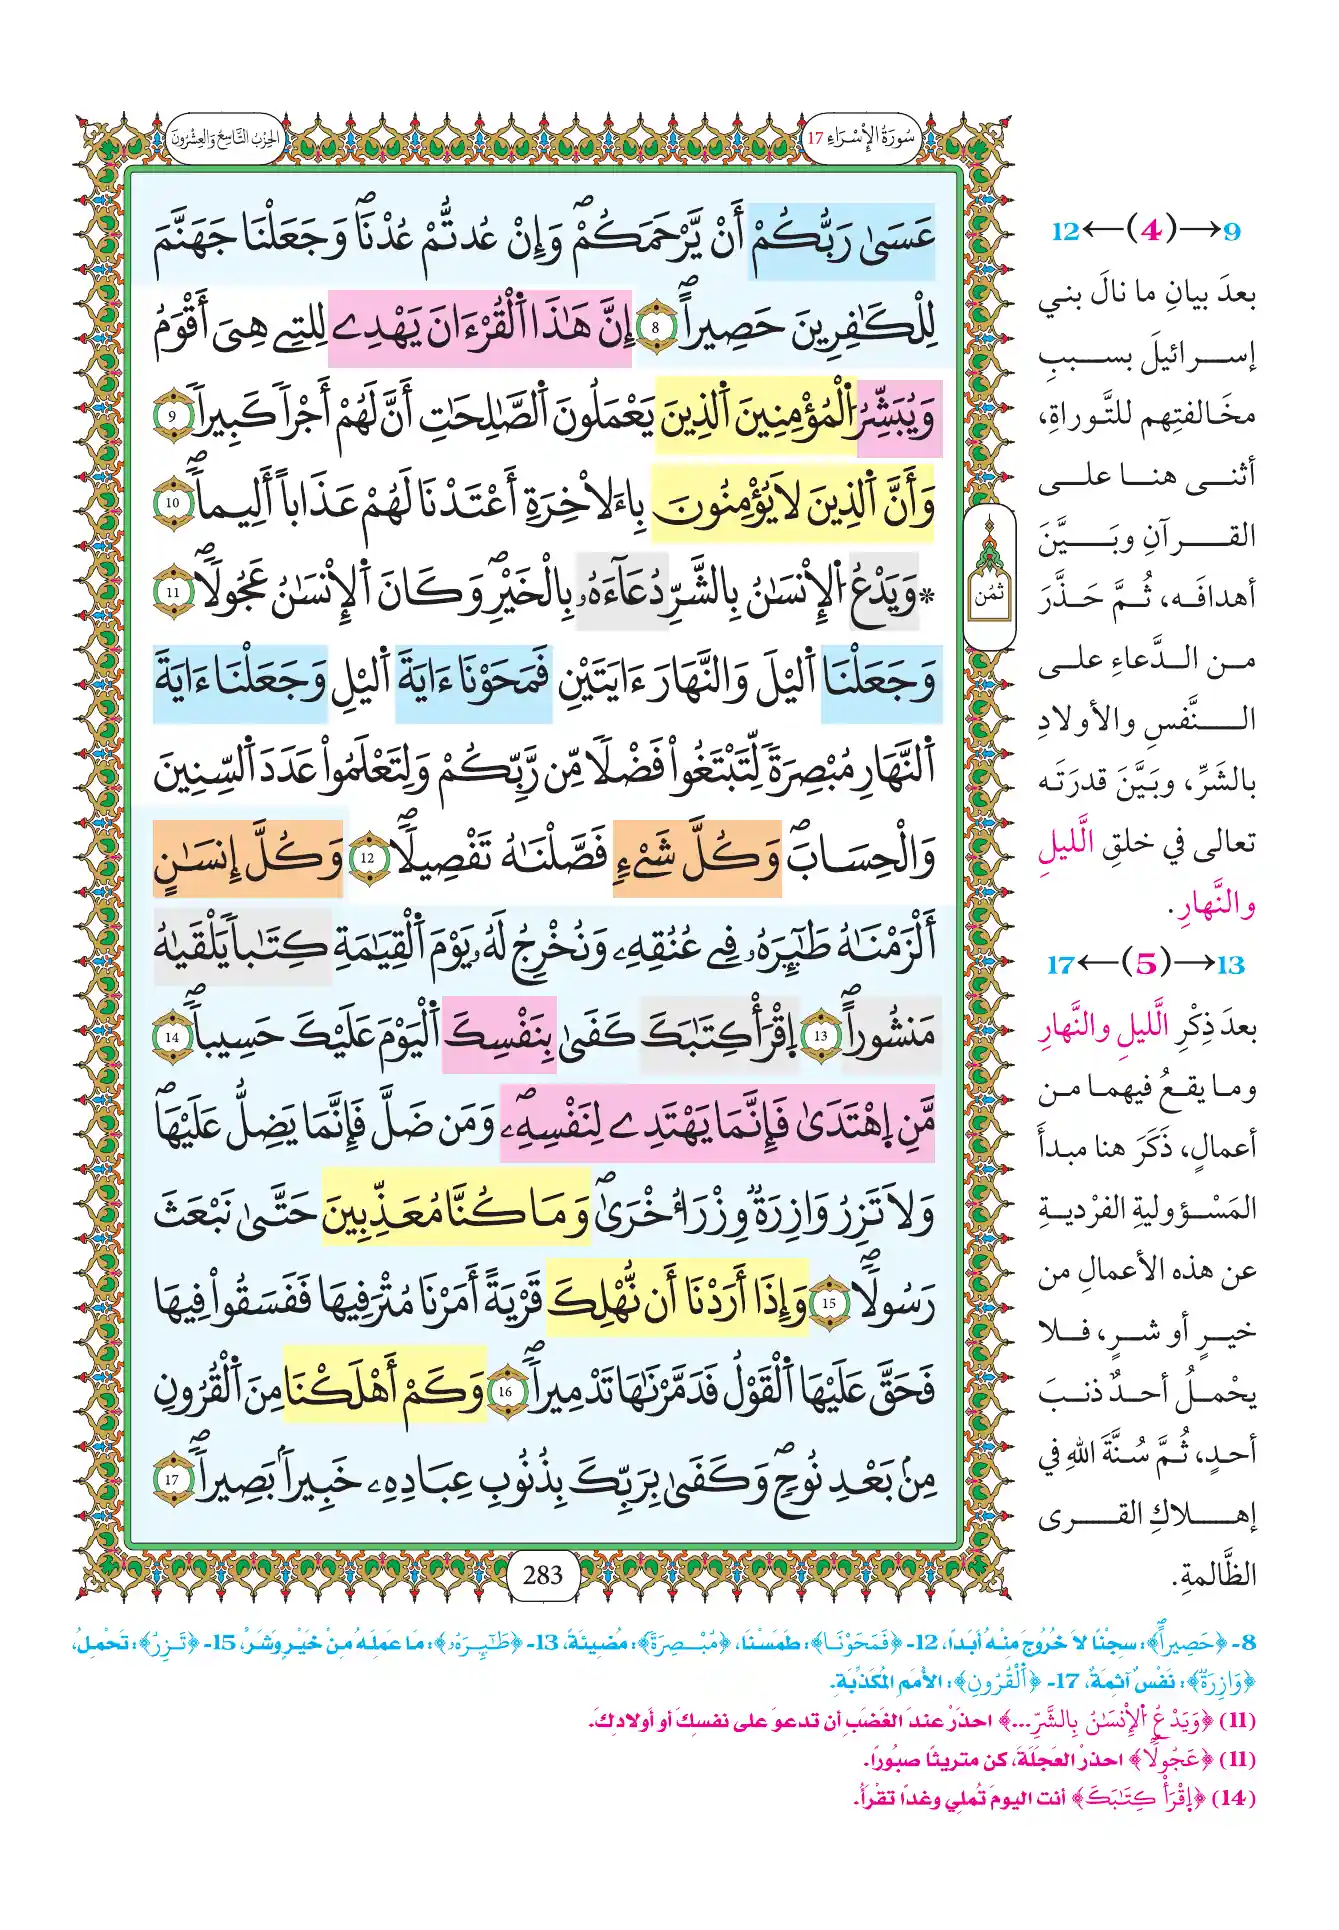 سُورَةُ الإِسْرَاءِ 17
الحِزْبُ التَّاسِعُ وَالعِشْرُونَ
عَسَىٰ رَبُّكُمُۥٓ أَنْ يَّرْحَمَكُمْۖ وَإِنْ عُدتُّمْ عُدْنَاۖ وَجَعَلْنَا جَهَنَّمَ
لِلْكَٰفِرِينَ حَصِيراًۖ 8 إِنَّ هَٰذَا اَ۬لْقُرْءَانَ يَهْدِے لِلتِے هِيَ أَقْوَمُ
وَيُبَشِّرُ اُ۬لْمُؤْمِنِينَ اَ۬لذِينَ يَعْمَلُونَ اَ۬لصَّٰلِحَٰتِ أَنَّ لَهُمْ أَجْراٗ كَبِيراٗ 9
وَأَنَّ اَ۬لذِينَ لَا يُؤْمِنُونَ بِاءَلَاخِرَةِ أَعْتَدْنَا لَهُمْ عَذَاباً أَلِيماٗۖ 10
* وَيَدْعُ اُ۬لْإِنسَٰنُ بِالشَّرِّ دُعَآءَهُۥ بِالْخَيْرِۖ وَكَانَ اَ۬لْإِنسَٰنُ عَجُولاٗۖ 11
وَجَعَلْنَا اَ۬ليْلَ وَالنَّهَارَ ءَايَتَيْنِ فَمَحَوْنَا ءَايَةَ اَ۬ليْلِ وَجَعَلْنَا ءَايَةَ
اَ۬لنَّهَارِ مُبْصِرَةٗ لِّتَبْتَغُواْ فَضْلاٗ مِّن رَّبِّكُمْ وَلِتَعْلَمُواْ عَدَدَ اَ۬لسِّنِينَ
وَالْحِسَابَۖ وَكُلَّ شَےْءٖ فَصَّلْنَٰهُ تَفْصِيلاٗۖ 12 وَكُلَّ إِنسَٰنٍ
أَلْزَمْنَٰهُ طَٰٓئِرَهُۥ فِے عُنُقِهِۦ وَنُخْرِجُ لَهُۥ يَوْمَ اَ۬لْقِيَٰمَةِ كِتَٰباٗ يَلْقَيٰهُ
مَنشُوراًۖ 13 اِ۪قْرَأْ كِتَٰبَكَ كَفَىٰ بِنَفْسِكَ اَ۬لْيَوْمَ عَلَيْكَ حَسِيباٗۖ 14
مَّنِ اِ۪هْتَدَىٰ فَإِنَّمَا يَهْتَدِے لِنَفْسِهِۦۖ وَمَن ضَلَّ فَإِنَّمَا يَضِلُّ عَلَيْهَاۖ
وَلَا تَزِرُ وَازِرَةٞ وِزْرَ أُخْرَىٰۖ وَمَا كُنَّا مُعَذِّبِينَ حَتَّىٰ نَبْعَثَ
رَسُولاٗۖ 15 وَإِذَا أَرَدْنَا أَن نُّهْلِكَ قَرْيَةً أَمَرْنَا مُتْرَفِيهَا فَفَسَقُواْ فِيهَا
فَحَقَّ عَلَيْهَا اَ۬لْقَوْلُ فَدَمَّرْنَٰهَا تَدْمِيراٗۖ 16 وَكَمْ أَهْلَكْنَا مِنَ اَ۬لْقُرُونِ
مِنۢ بَعْدِ نُوحٖۖ وَكَفَىٰ بِرَبِّكَ بِذُنُوبِ عِبَادِهِۦ خَبِيراَۢ بَصِيراٗۖ 17
ثُمُن
283
9→(4)←12
بعدَ بيانِ ما نالَ بني
إسرائيلَ بسببِ
مخَالفتِهم للتَّوراةِ،
أثنى هنا على
القرآنِ وبَيَّنَ
أهدافَه، ثُمَّ حَذَّرَ
من الدَّعاءِ على
النَّفسِ والأولادِ
بالشَرِّ، وبَيَّنَ قدرَتَه
تعالى في خلقِ الَّليلِ
والنَّهارِ.
13→(5)←17
بعدَ ذِكْرِ الَّليلِ والنَّهارِ
وما يقعُ فيهما من
أعمالٍ، ذَكَرَ هنا مبدأَ
المَسْؤوليةِ الفرْديةِ
عن هذه الأعمالِ من
خيرٍ أو شرٍ، فلا
يحْملُ أحدٌ ذنبَ
أحدٍ، ثُمَّ سُنَّةَ اللهِ في
إهلاكِ القرى
الظَّالمةِ.
8- ﴿حَصِيراً﴾: سِجْنًا لاَ خُرُوجَ مِنْهُ أَبَدًا، 12- ﴿فَمَحَوْنَا﴾: طَمَسْنَا، ﴿مُبْصِرَةٗ﴾: مُضِيئَةً، 13- ﴿طَٰٓئِرَهُۥ﴾: مَا عَمِلَهُ مِنْ خَيْرٍ وَشَرٍّ، 15- ﴿تَزِرُ﴾: تَحْمِلُ،
﴿وَازِرَةٞ﴾: نَفْسٌ آثِمَةٌ، 17- ﴿اَ۬لْقُرُونِ﴾: الأُمَمِ المُكَذِّبَةِ.
(11) ﴿وَيَدْعُ اُ۬لْإِنسَٰنُ بِالشَّرِّ...﴾ احذَرْ عندَ الغَضَبِ أن تدعوَ على نفسِكَ أو أولادِكَ.
(11) ﴿عَجُولاٗ﴾ احذرْ العَجَلَةَ، كن متريثًا صبُورًا.
(14) ﴿اِ۪قْرَأْ كِتَٰبَكَ﴾ أنت اليومَ تُملِي وغدًا تقْرَأُ.